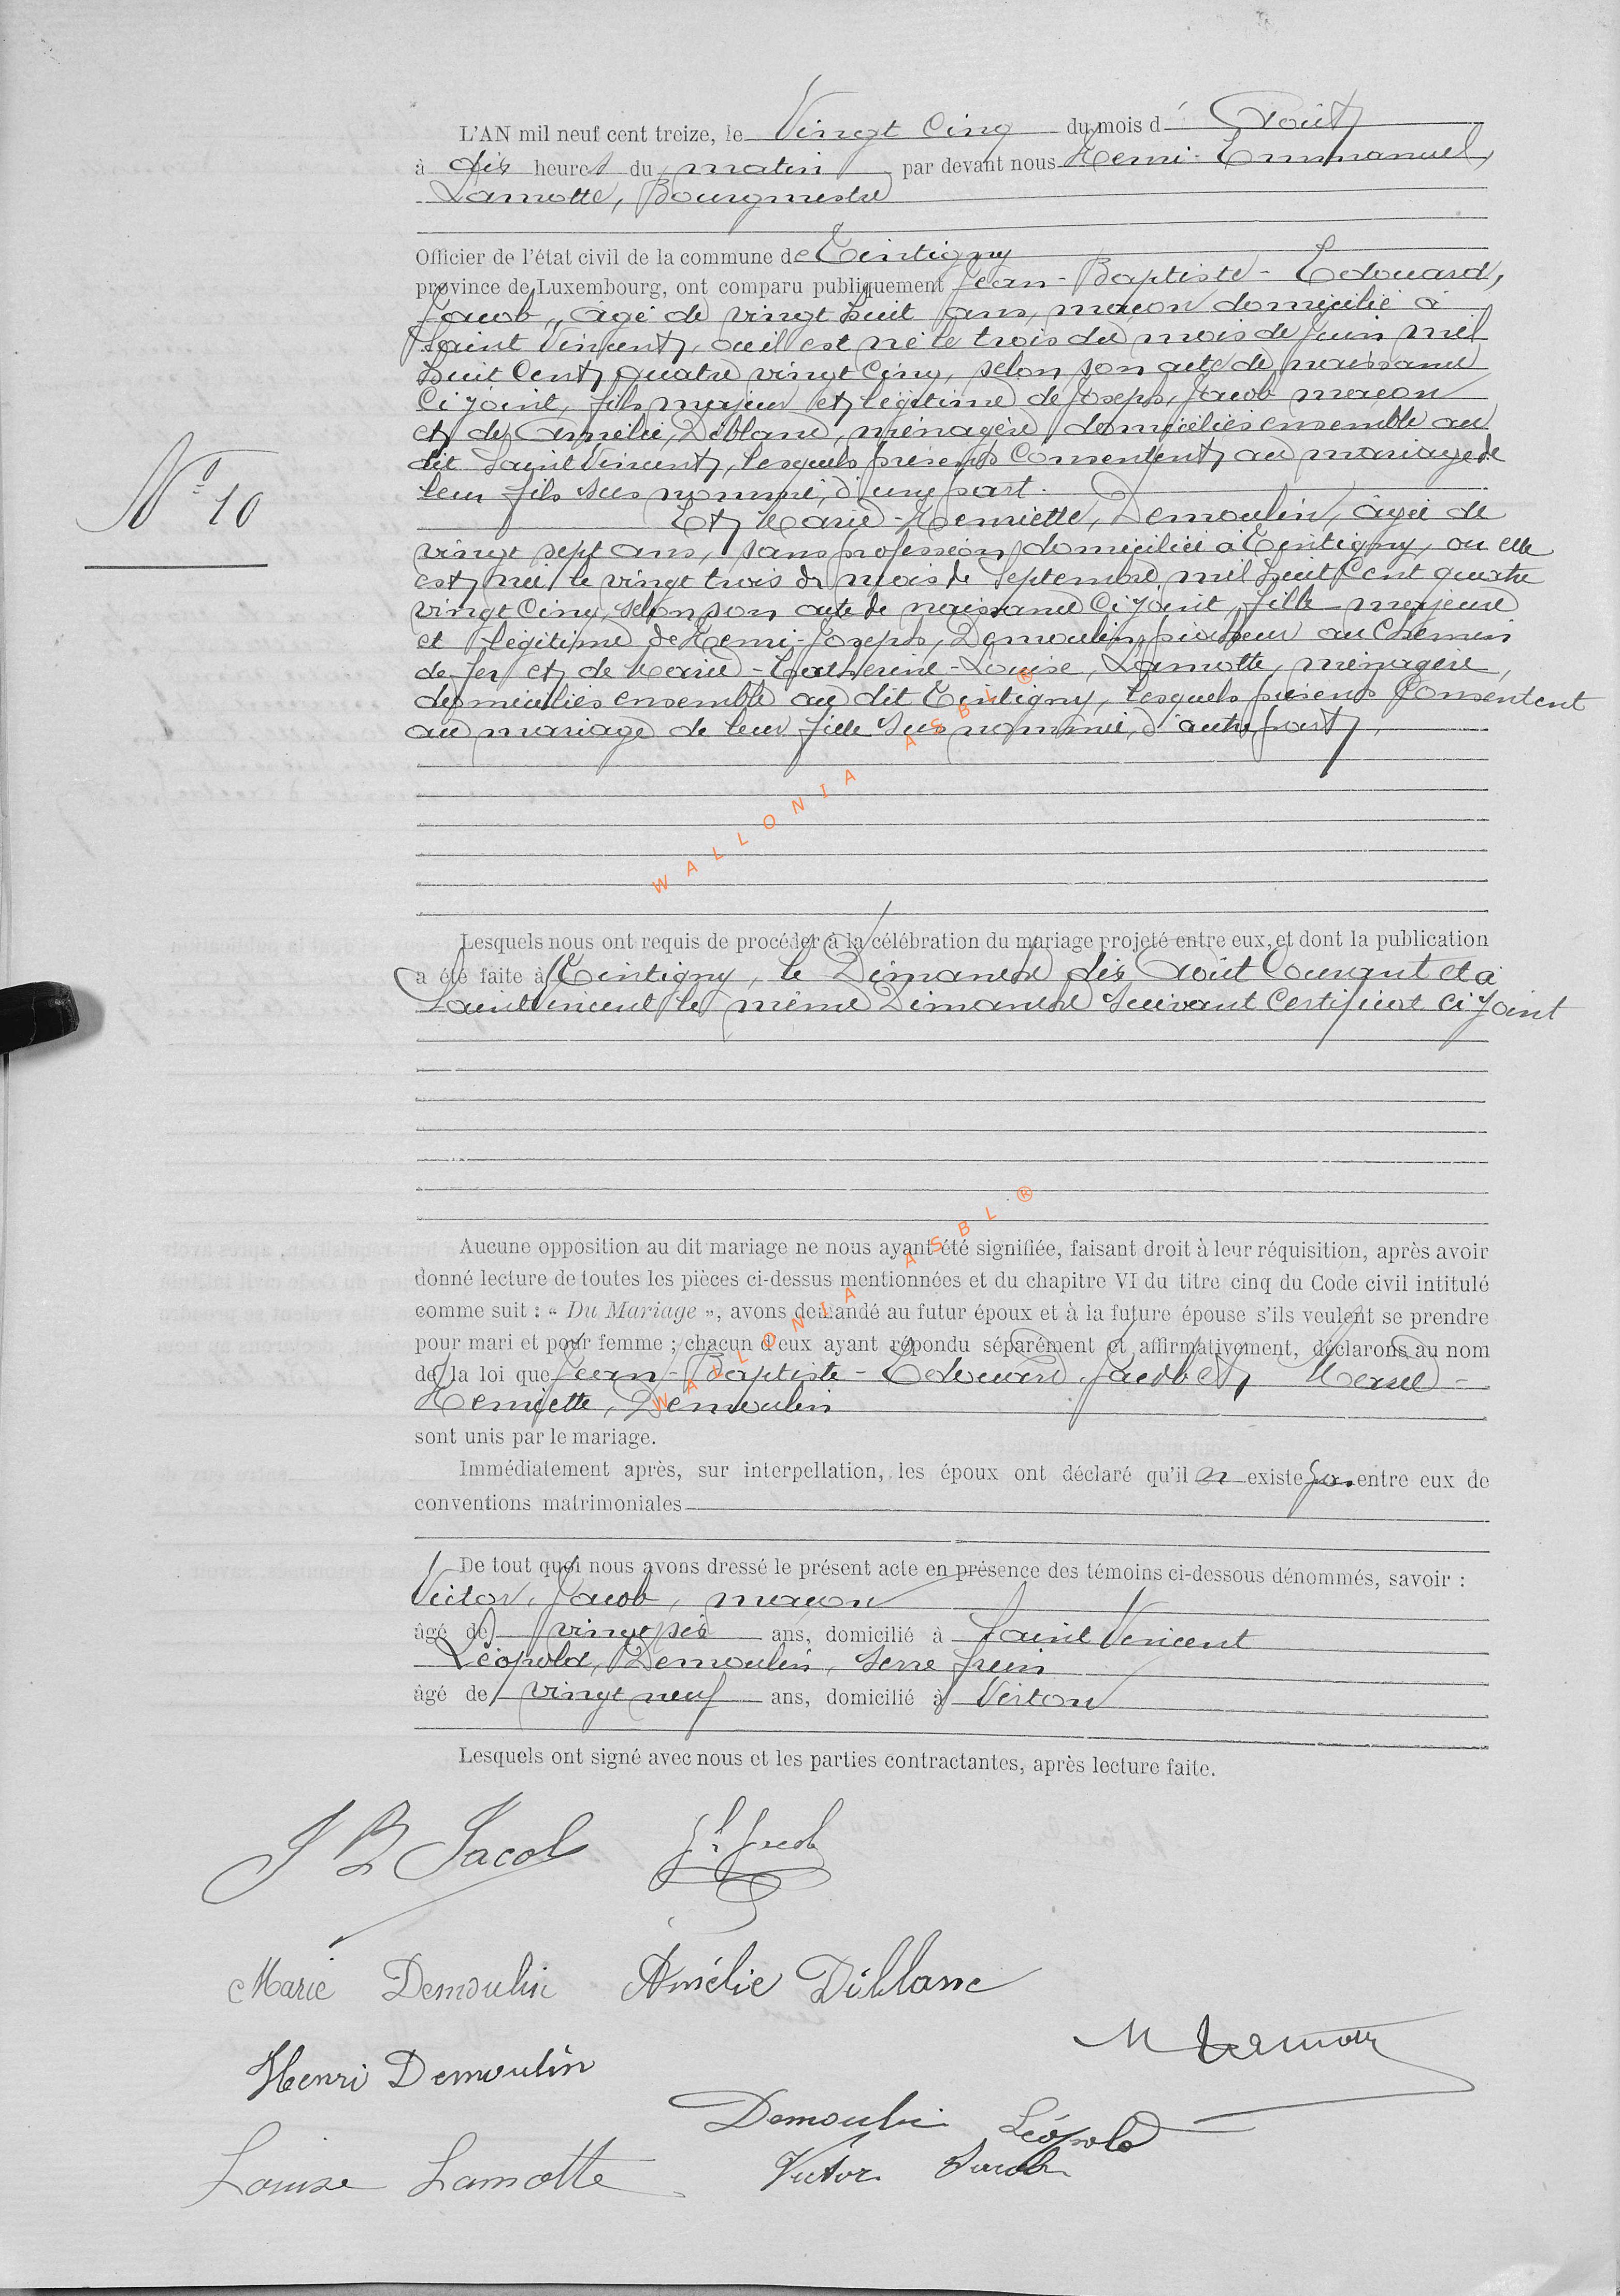 L'AN mil neuf cent treize, le Vingt Cinq du mois d' Août
à dix heures du matin par devant nous Henri-Emmanuel,
Lamotte, Bourgmestre
Officier de l'état civil de la commune de Tintigny
province de Luxembourg, ont comparu publiquement Jean-Baptiste-Edouard,
Jacob, âgé de vingt huit ans, maçon domicilié à
Saint Vincent, où il est né le trois du mois de Juin mil
huit Cent quatre vingt Cinq, selon son acte de naissance
Ci joint, fils majeur et légitime de Joseph, Jacob maçon
et de Amélie, Diblanc, ménagère, domiciliés ensemble au
dit Saint Vincent, lesquels présents Consentent au mariage de
leur fils sus nommé, d'une part.
N° 10
Et Marie-Henriette, Demoulin, âgée de
vingt sept ans, sans profession domiciliée à Tintigny, où elle
est née le vingt trois du mois de Septembre mil huit Cent quatre
vingt Cinq, selon son acte de naissance Ci joint, fille majeure
et légitime de Henri-Joseph, Demoulin, piocheur au Chemin
de fer et de Marie-Catherine-Louise, Lamotte, ménagère,
domiciliés ensemble au dit Tintigny, lesquels présents Consentent
au mariage de leur fille sus nommée, d'autre part,
WALLONIA ASBL ®
Lesquels nous ont requis de procéder à la célébration du mariage projeté entre eux, et dont la publication
a été faite à Tintigny, le Dimanche dix Août Courant et à
Saint Vincent le même Dimanche suivant Certificat Ci joint
WALLONIA ASBL ®
Aucune opposition au dit mariage ne nous ayant été signifiée, faisant droit à leur réquisition, après avoir
donné lecture de toutes les pièces ci-dessus mentionnées et du chapitre VI du titre cinq du Code civil intitulé
comme suit : « Du Mariage », avons demandé au futur époux et à la future épouse s'ils veulent se prendre
pour mari et pour femme ; chacun d'eux ayant répondu séparément et affirmativement, déclarons au nom
de la loi que Jean-Baptiste-Edouard Jacob et, Marie-
Henriette, Demoulin
sont unis par le mariage.
Immédiatement après, sur interpellation, les époux ont déclaré qu'il n existe pas entre eux de
conventions matrimoniales
De tout quoi nous avons dressé le présent acte en présence des témoins ci-dessous dénommés, savoir :
Victor, Jacob, maçon
âgé de vingt six ans, domicilié à Saint Vincent
Léopold, Demoulin, serre frein
âgé de vingt neuf ans, domicilié à Virton
Lesquels ont signé avec nous et les parties contractantes, après lecture faite.
J B Jacob Jh Jacob
Marie Demoulin Amélie Diblanc
Henri Demoulin
Demoulin Léopold
Louise Lamotte Victor Jacob